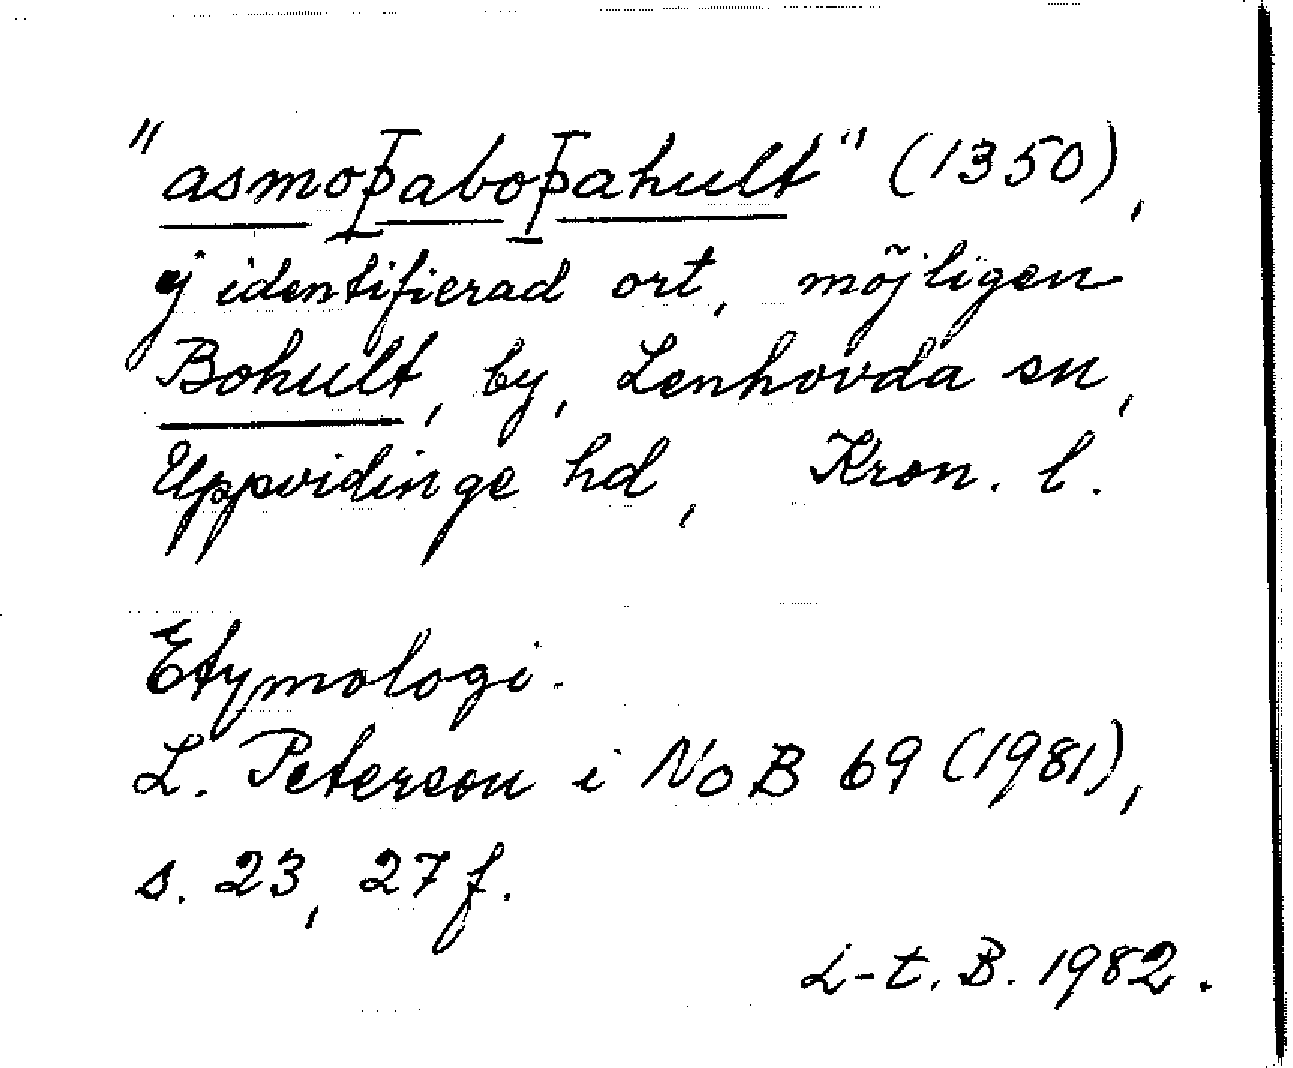 "asmoþaboþahult" (1350),
ej identifierad ort, möjligen
Bohult, by, Lenhovda sn,
Uppvidinge hd, Kron. l.
Etymologi.
L. Peterson i NoB 69 (1981),
s. 23, 27 f.
L-t. B. 1982.